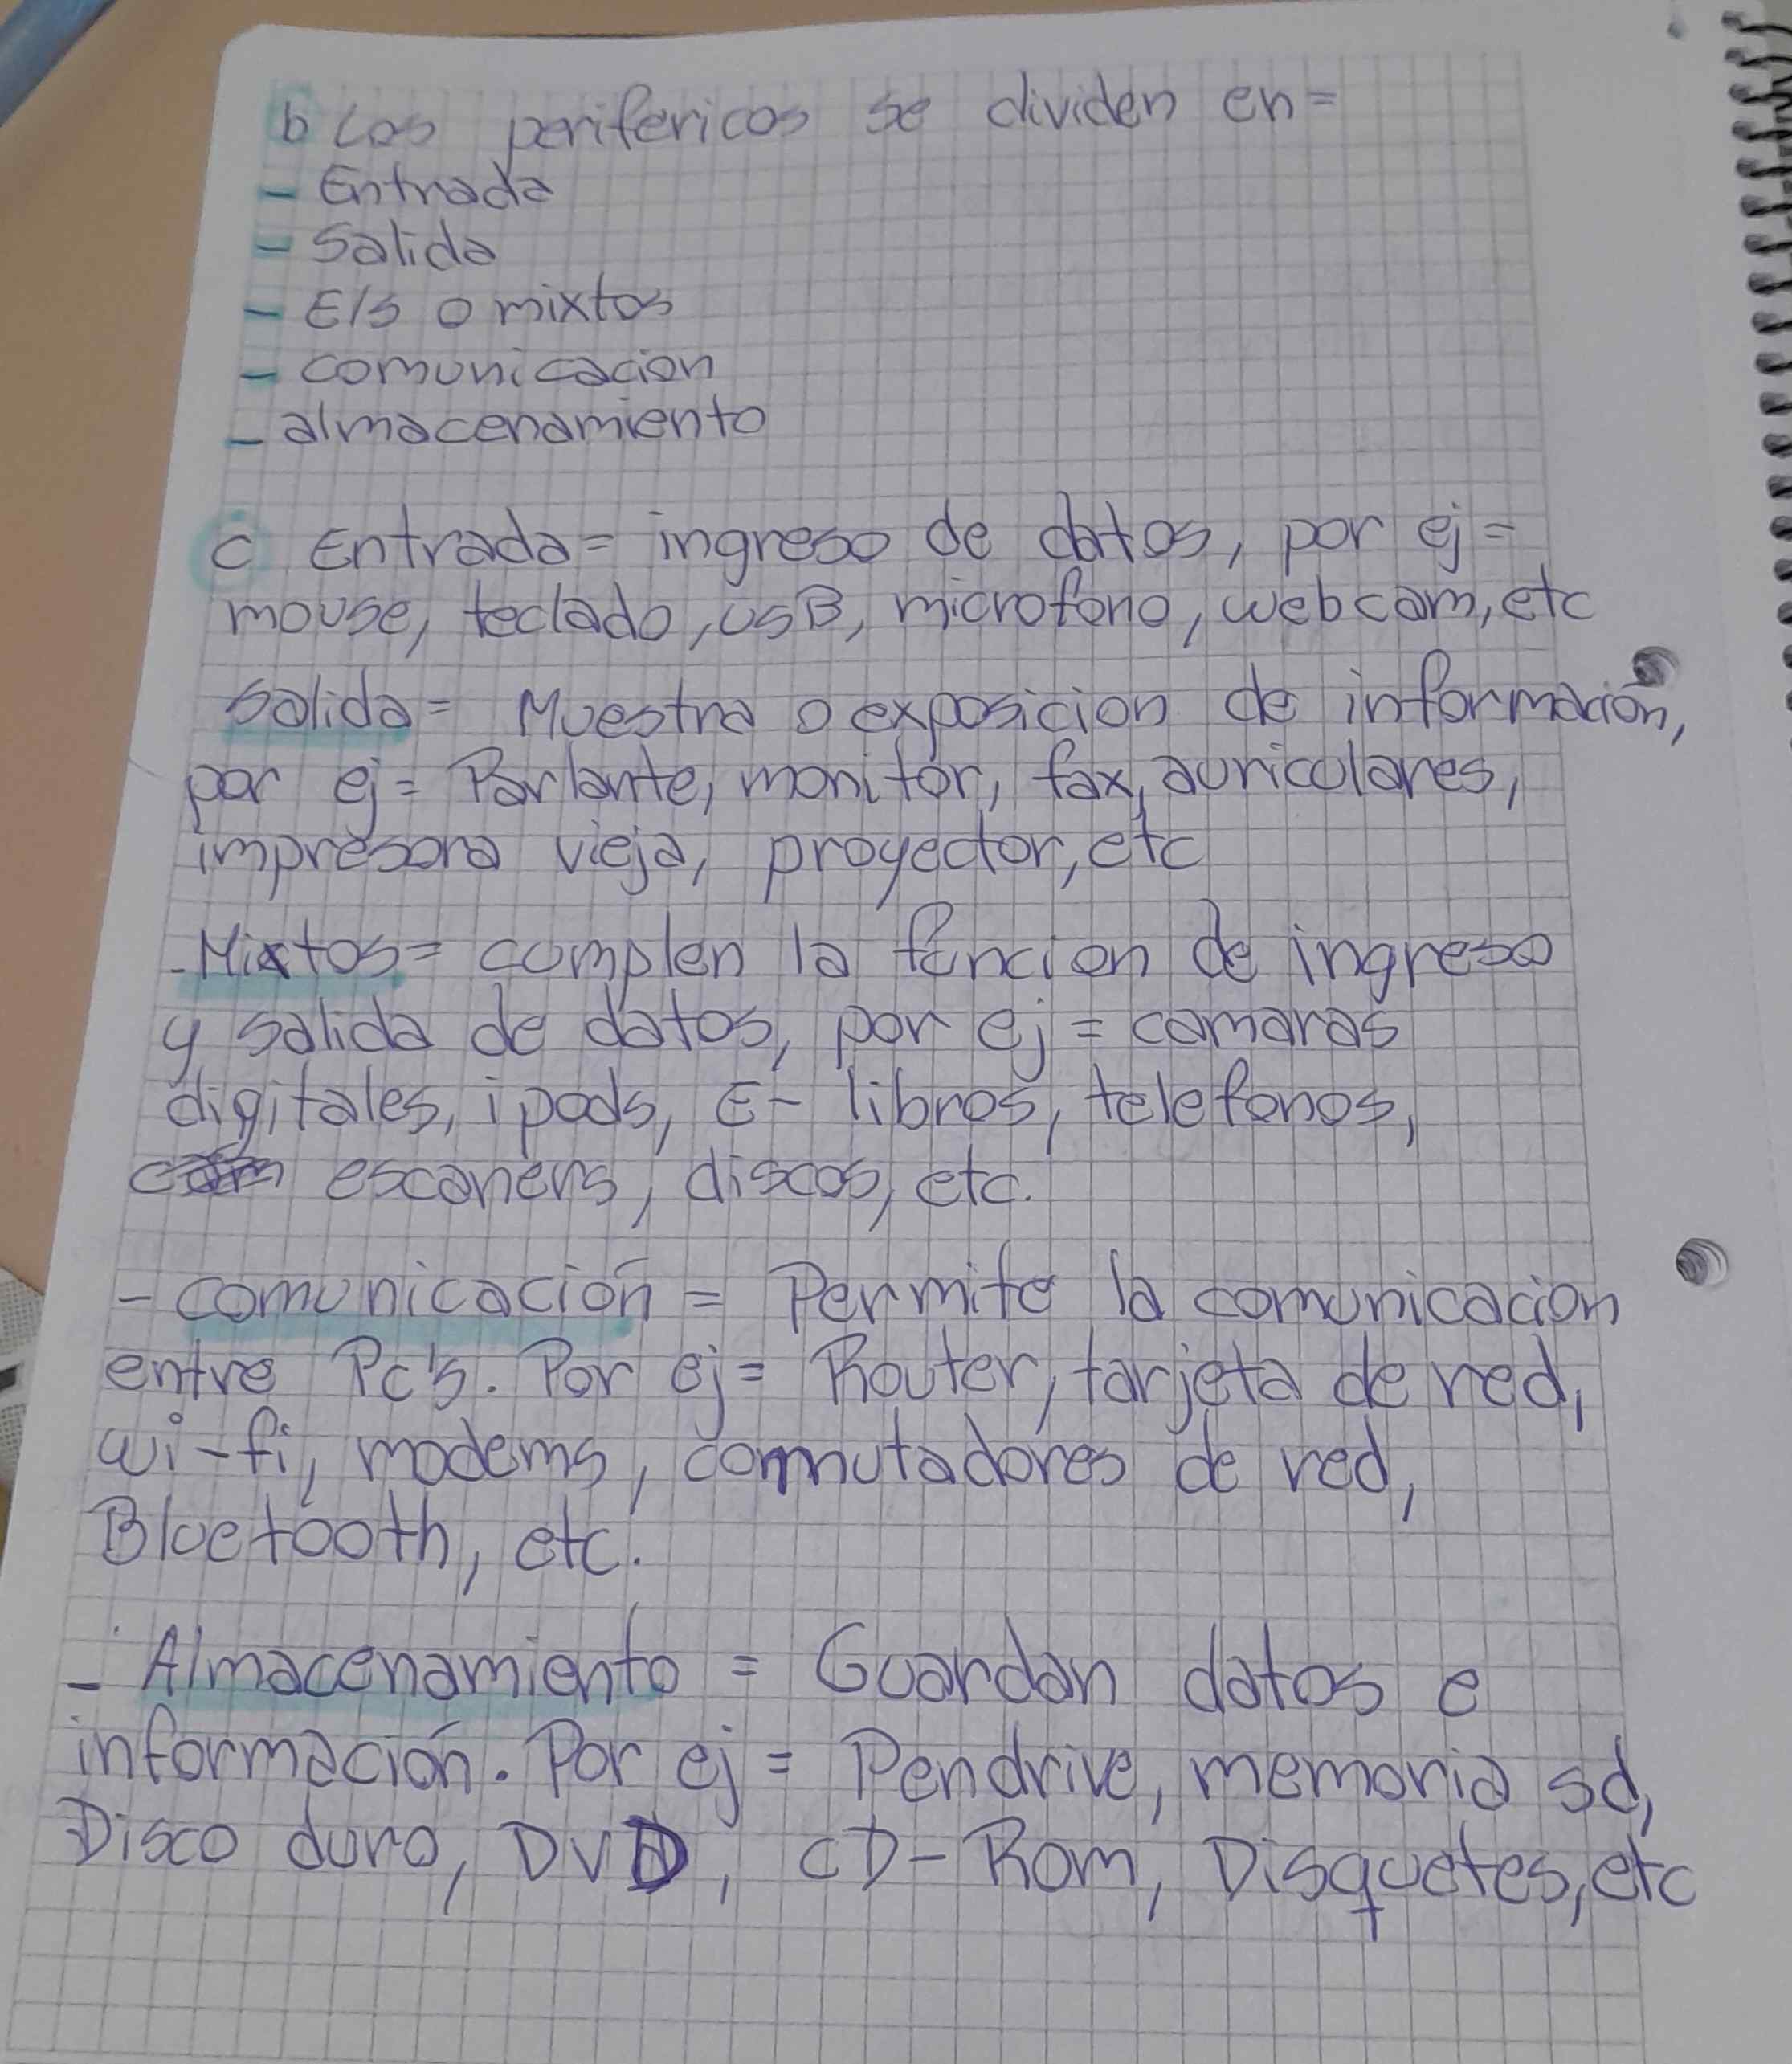 b Los perifericos se dividen en=
- Entrada
- Salida
- E/S o mixtos
- comunicacion
- almacenamiento
c Entrada= ingreso de datos, por ej=
mouse, teclado, USB, microfono, webcam, etc
Salida= Muestra o exposicion de información,
por ej= Parlante, monitor, fax, auriculares,
impresora vieja, proyector, etc
- Mixtos= cumplen la funcion de ingreso
y salida de datos, por ej= camaras
digitales, ipods, E- libros, telefonos,
escaners, discos, etc.
- comunicación = Permite la comunicacion
entre Pc's. Por ej= Router, tarjeta de red,
wi-fi, modems, conmutadores de red,
Bluetooth, etc.
- Almacenamiento = Guardan datos e
información. Por ej= Pendrive, memoria sd,
Disco duro, DVD, CD-Rom, Disquetes, etc